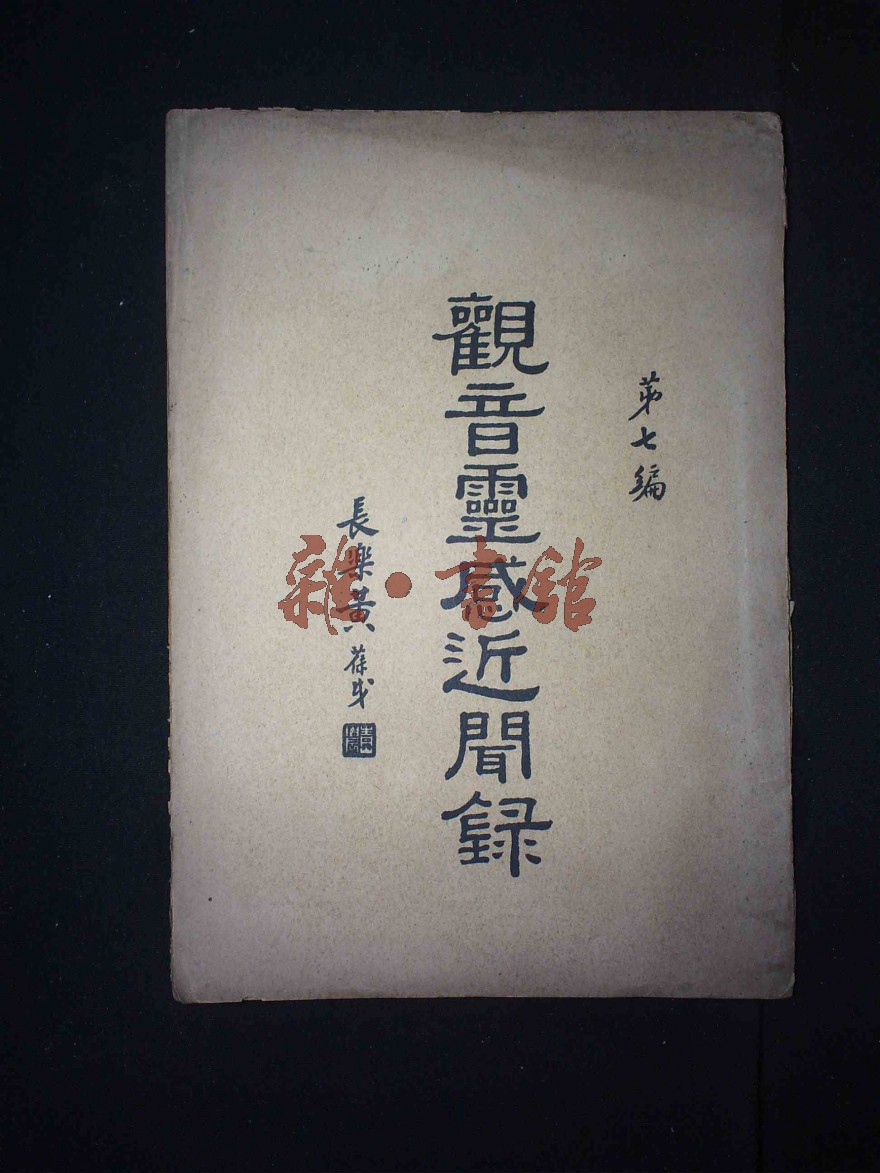 第七編
觀音靈感近聞録
長樂黃葆戉
雜·書館